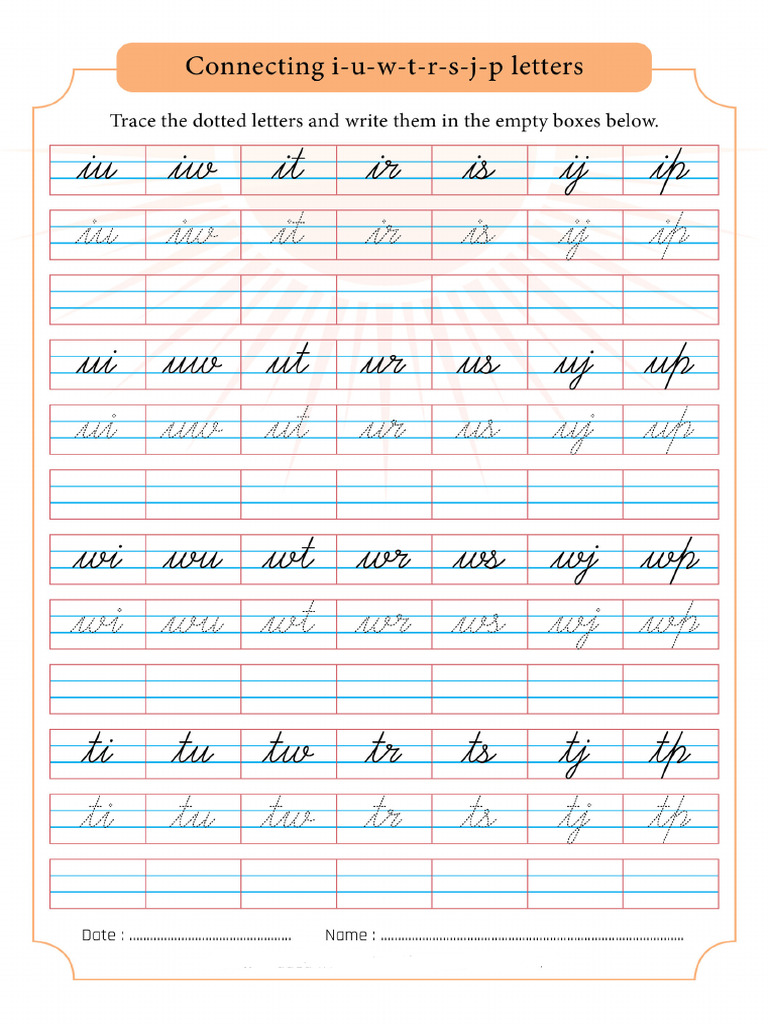 Connecting i-u-w-t-r-s-j-p letters
Trace the dotted letters and write them in the empty boxes below.
iu iw it ir is ij ip
iu iw it ir is ij ip
ui uw ut ur us uj up
ui uw ut ur us uj up
wi wu wt wr ws wj wp
wi wu wt wr ws wj wp
ti tu tw tr ts tj tp
ti tu tw tr ts tj tp
Date : ........................................ Name : ........................................................................